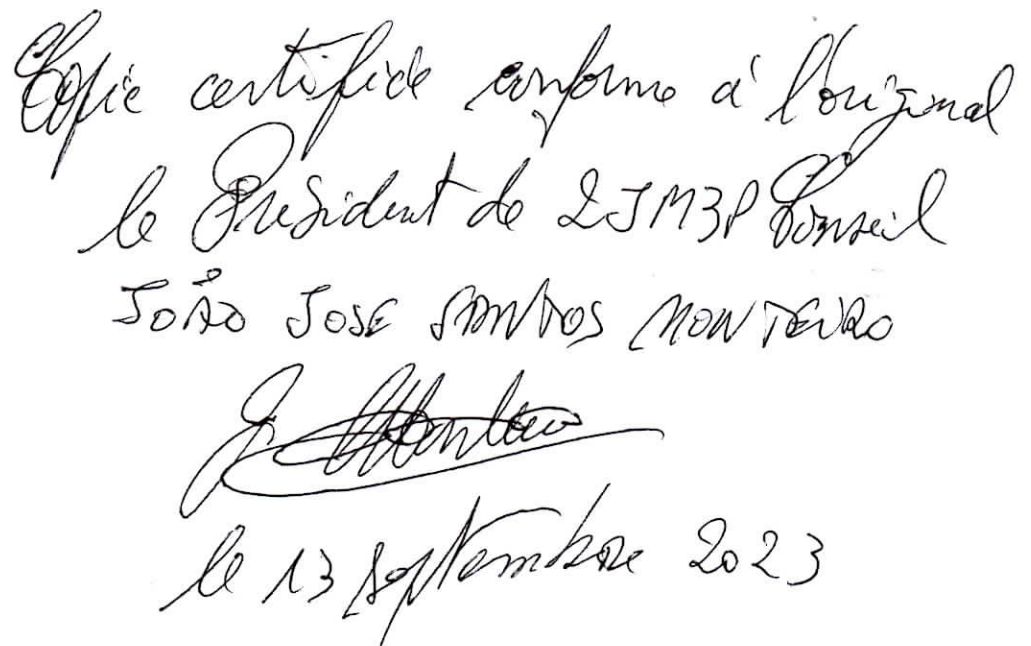 Copie certifiée conforme à l'original
le Président de 2JM3P Conseil
JOÃO JOSE SANTOS MONTEIRO
le 13 septembre 2023